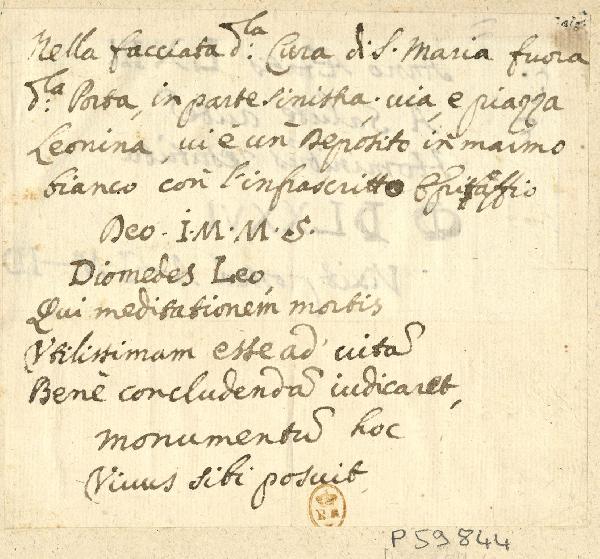 Nella facciata d:la Cura di S. Maria fuora
d:la Porta, in parte sinistra. via, e piazza
Leonina, vi è un Deposito in marmo
bianco con l'infrascritto Epitaffio
Deo. I. M. M. S.
Diomedes Leo,
Qui meditationem mortis
Vtilissimam esse ad vitã
Benè concludendã iudicaret,
monumentũ hoc
Vivus sibi posuit
P59844